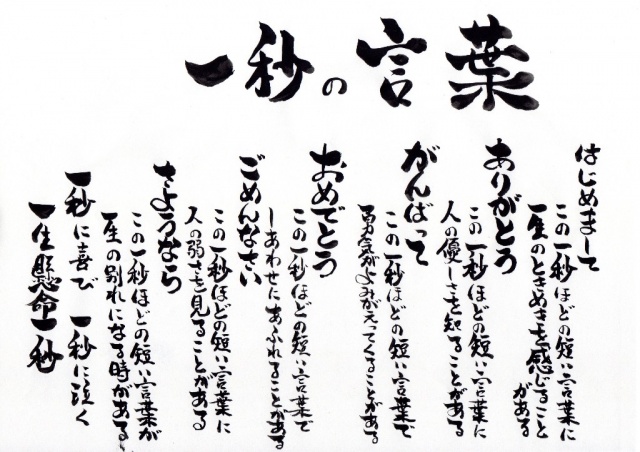 一秒の言葉
はじめまして
この一秒ほどの短い言葉に
一生のときめきを感じること
がある
ありがとう
この一秒ほどの短い言葉に
人の優しさを知ることがある
がんばって
この一秒ほどの短い言葉で
勇気がよみがえってくることがある
おめでとう
この一秒ほどの短い言葉で
しあわせにあふれることがある
ごめんなさい
この一秒ほどの短い言葉に
人の弱さを見ることがある
さようなら
この一秒ほどの短い言葉が
一生の別れになる時がある
一秒に喜び 一秒に泣く
一生懸命一秒